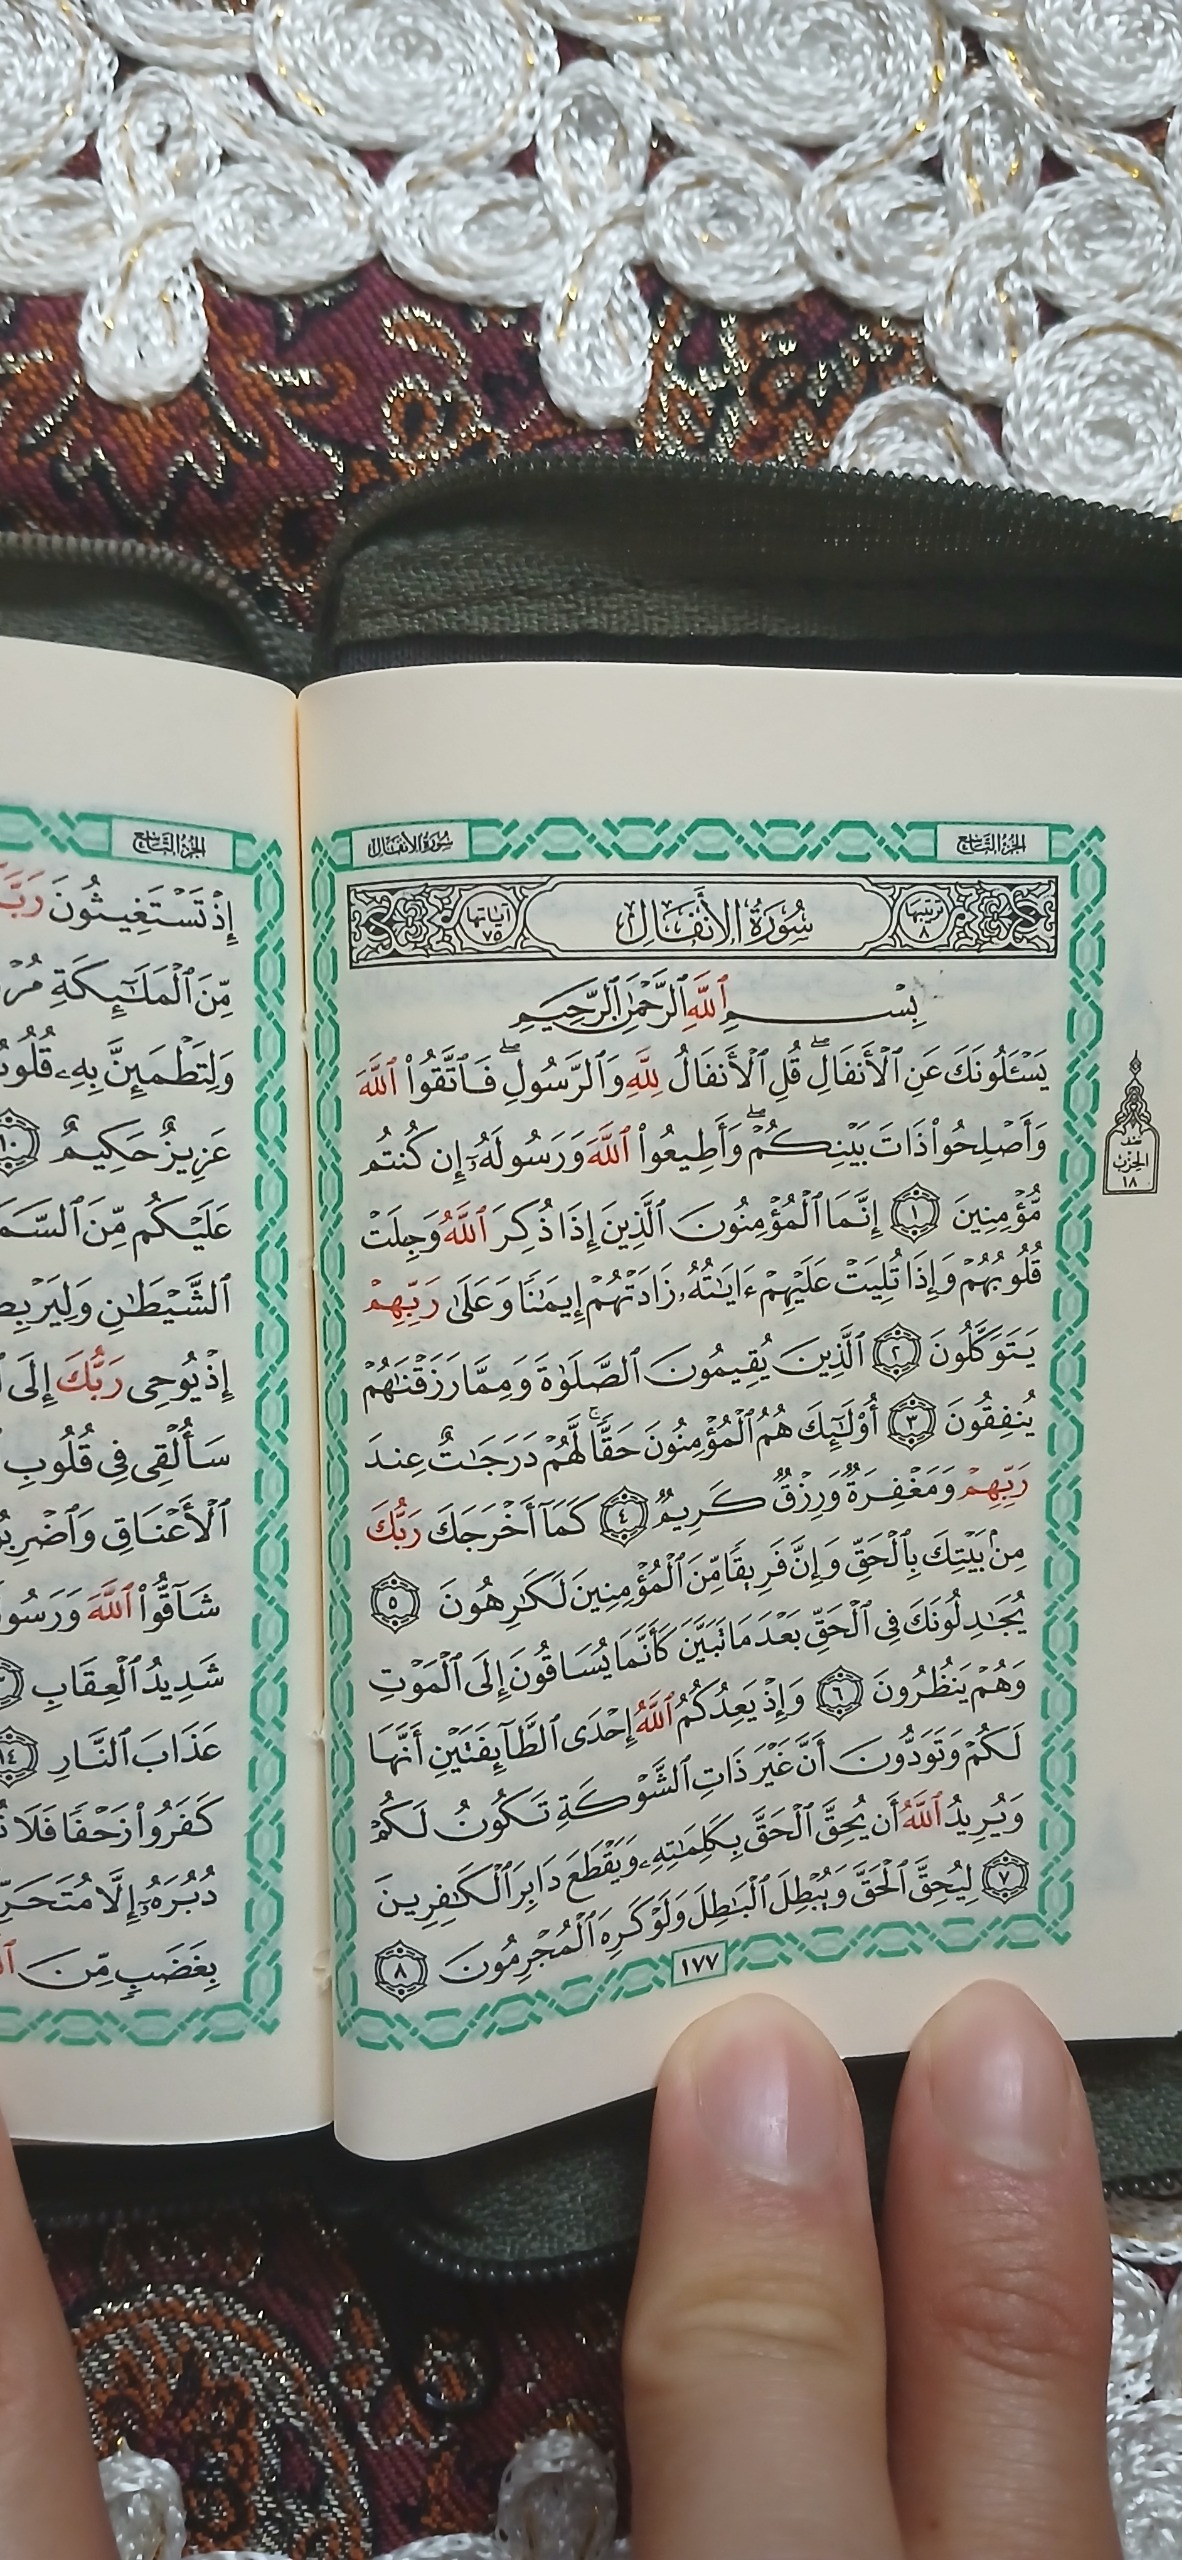 الجزء التاسع
سورة الأنفال
ترتيبها ٨
سُورَةُ الأَنفَالِ
آياتها ٧٥
بِسْمِ ٱللَّهِ ٱلرَّحْمَٰنِ ٱلرَّحِيمِ
يَسْـَٔلُونَكَ عَنِ ٱلْأَنفَالِۖ قُلِ ٱلْأَنفَالُ لِلَّهِ وَٱلرَّسُولِۖ فَٱتَّقُوا۟ ٱللَّهَ
وَأَصْلِحُوا۟ ذَاتَ بَيْنِكُمْۖ وَأَطِيعُوا۟ ٱللَّهَ وَرَسُولَهُۥٓ إِن كُنتُم
مُّؤْمِنِينَ ١ إِنَّمَا ٱلْمُؤْمِنُونَ ٱلَّذِينَ إِذَا ذُكِرَ ٱللَّهُ وَجِلَتْ
قُلُوبُهُمْ وَإِذَا تُلِيَتْ عَلَيْهِمْ ءَايَٰتُهُۥ زَادَتْهُمْ إِيمَٰنًا وَعَلَىٰ رَبِّهِمْ
يَتَوَكَّلُونَ ٢ ٱلَّذِينَ يُقِيمُونَ ٱلصَّلَوٰةَ وَمِمَّا رَزَقْنَٰهُمْ
يُنفِقُونَ ٣ أُو۟لَٰٓئِكَ هُمُ ٱلْمُؤْمِنُونَ حَقًّاۚ لَّهُمْ دَرَجَٰتٌ عِندَ
رَبِّهِمْ وَمَغْفِرَةٌ وَرِزْقٌ كَرِيمٌ ٤ كَمَآ أَخْرَجَكَ رَبُّكَ
مِنۢ بَيْتِكَ بِٱلْحَقِّ وَإِنَّ فَرِيقًا مِّنَ ٱلْمُؤْمِنِينَ لَكَٰرِهُونَ ٥
يُجَٰدِلُونَكَ فِى ٱلْحَقِّ بَعْدَ مَا تَبَيَّنَ كَأَنَّمَا يُسَاقُونَ إِلَى ٱلْمَوْتِ
وَهُمْ يَنظُرُونَ ٦ وَإِذْ يَعِدُكُمُ ٱللَّهُ إِحْدَى ٱلطَّآئِفَتَيْنِ أَنَّهَا
لَكُمْ وَتَوَدُّونَ أَنَّ غَيْرَ ذَاتِ ٱلشَّوْكَةِ تَكُونُ لَكُمْ
وَيُرِيدُ ٱللَّهُ أَن يُحِقَّ ٱلْحَقَّ بِكَلِمَٰتِهِۦ وَيَقْطَعَ دَابِرَ ٱلْكَٰفِرِينَ
٧ لِيُحِقَّ ٱلْحَقَّ وَيُبْطِلَ ٱلْبَٰطِلَ وَلَوْ كَرِهَ ٱلْمُجْرِمُونَ ٨
١٧٧
نصف
الحزب
١٨
الجزء التاسع
إِذْ تَسْتَغِيثُونَ
مِّنَ ٱلْمَلَٰٓئِكَةِ
وَلِتَطْمَئِنَّ بِهِۦ
عَزِيزٌ حَكِيمٌ ١٠
عَلَيْكُم مِّنَ
ٱلشَّيْطَٰنِ
إِذْ يُوحِى رَبُّكَ إِلَى
سَأُلْقِى فِى قُلُوبِ
ٱلْأَعْنَاقِ
شَآقُّوا۟ ٱللَّهَ
شَدِيدُ ٱلْعِقَابِ
عَذَابَ ٱلنَّارِ ١٤
كَفَرُوا۟ زَحْفًا فَلَا
دُبُرَهُۥٓ إِلَّا
بِغَضَبٍ مِّنَ